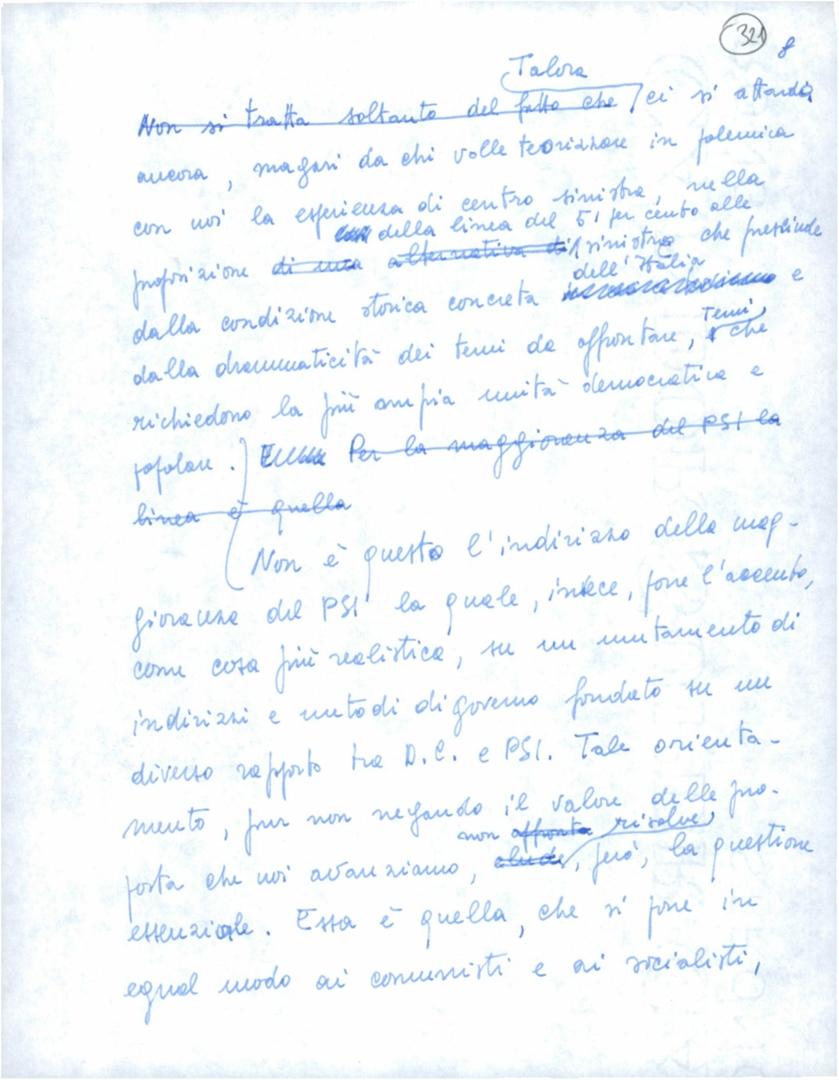 321 8
Talora
Non si tratta soltanto del fatto che ci si attarda
ancora, magari da chi volle teorizzare in polemica
con noi la esperienza di centro sinistra, nella
della linea del 51 per cento alle
proposizione di una alternativa di sinistre che prescinde
dell'Italia
dalla condizione storica concreta e
dalla drammaticità dei temi da affrontare, Temi, che
richiedono la più ampia unità democratica e
popolare. Per la maggioranza del PSI la
linea è quella
Non è questo l'indirizzo della mag-
gioranza del PSI la quale, invece, pone l'accento,
come cosa più realistica, su un mutamento di
indirizzi e metodi di governo fondato su un
diverso rapporto tra D.C. e PSI. Tale orienta-
mento, pur non negando il valore delle pro-
non affronta risolve,
posta che noi avanziamo, elude, però, la questione
essenziale. Essa è quella, che si pone in
egual modo ai comunisti e ai socialisti,